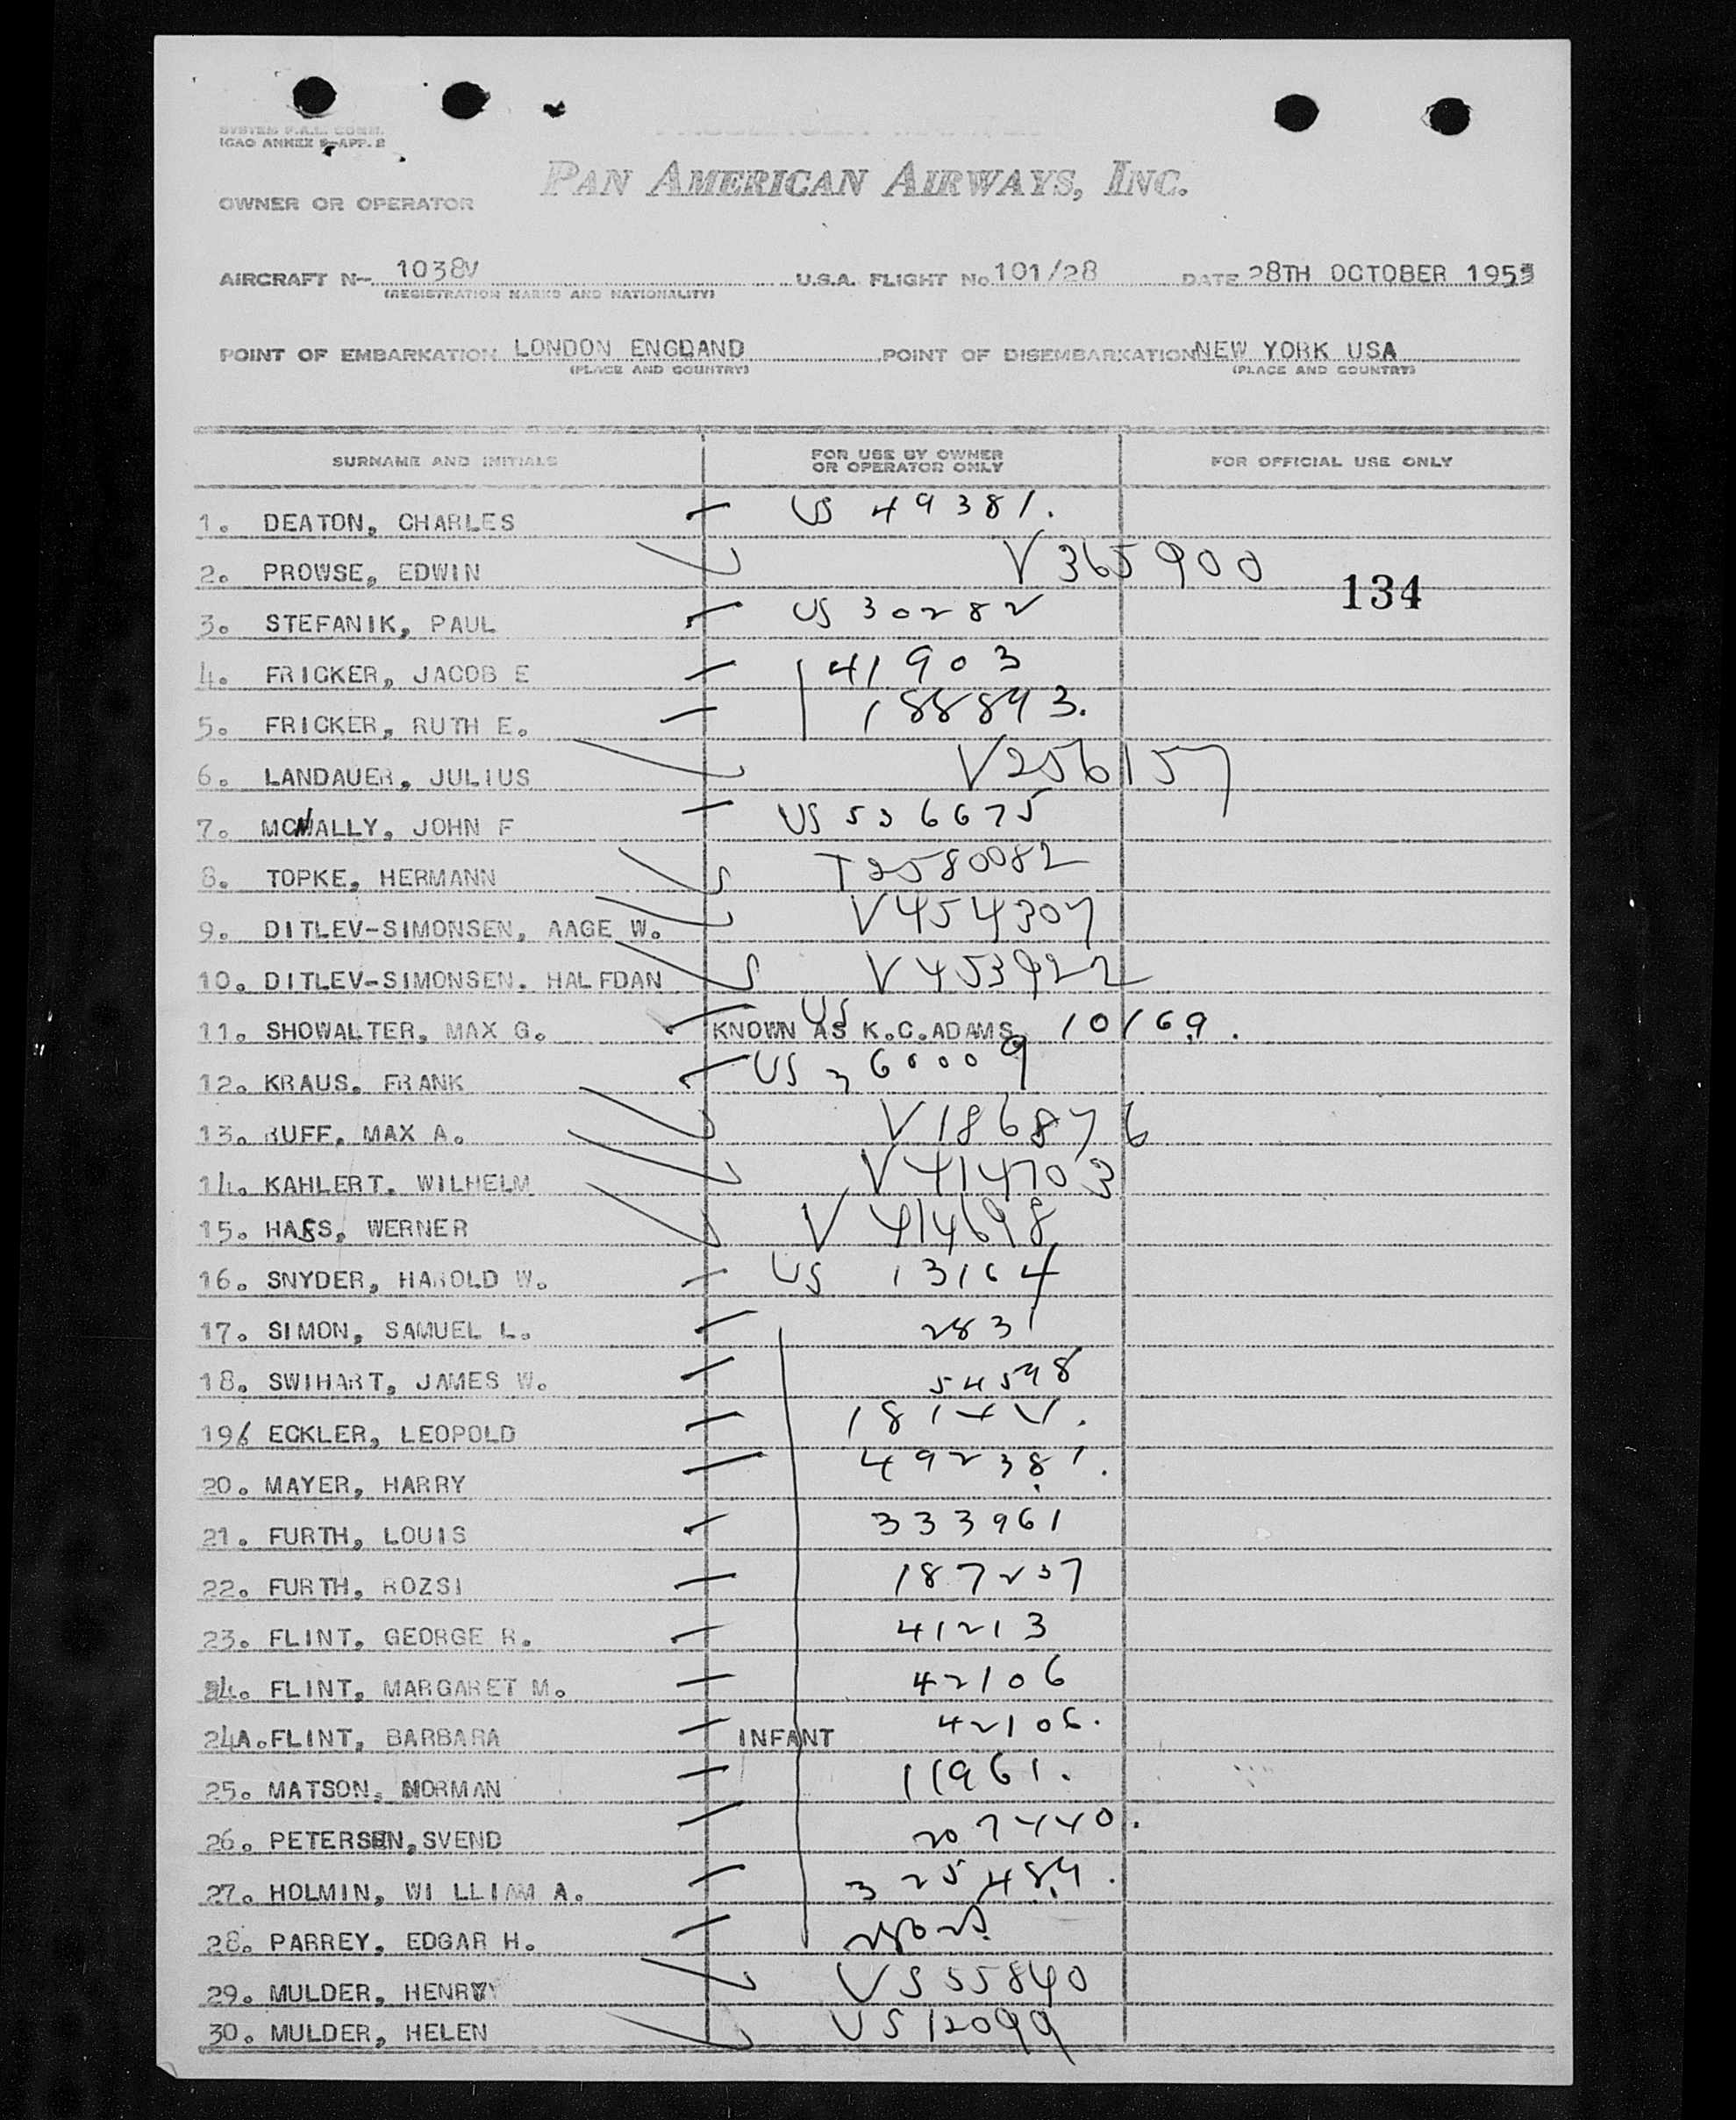 SYSTEM F.A.L. COMM.
ICAO ANNEX 9-APP. 2
PAN AMERICAN AIRWAYS, INC.
OWNER OR OPERATOR
AIRCRAFT N-- 1038V U.S.A. FLIGHT No 101/28 DATE 28TH OCTOBER 1953
(REGISTRATION MARKS AND NATIONALITY)
POINT OF EMBARKATION LONDON ENGDAND POINT OF DISEMBARKATION NEW YORK USA
(PLACE AND COUNTRY) (PLACE AND COUNTRY)
SURNAME AND INITIALS FOR USE BY OWNER OR OPERATOR ONLY FOR OFFICIAL USE ONLY
1. DEATON, CHARLES US 49381.
2. PROWSE, EDWIN V365900
134
3. STEFANIK, PAUL US 30282
4. FRICKER, JACOB E 41903
5. FRICKER, RUTH E. 188893.
6. LANDAUER, JULIUS V256157
7. MCNALLY, JOHN F US 536675
8. TOPKE, HERMANN T2580082
9. DITLEV-SIMONSEN, AAGE W. V454307
10. DITLEV-SIMONSEN. HALFDAN V453922
11. SHOWALTER, MAX G. KNOWN AS K.C.ADAMS US 10169.
12. KRAUS, FRANK US 360009
13. RUFF, MAX A. V186876
14. KAHLERT. WILHELM V414703
15. HAKS, WERNER V 414698
16. SNYDER, HAROLD W. US 13164
17. SIMON, SAMUEL L. 2831
18. SWIHART, JAMES W. 54598
19. ECKLER, LEOPOLD
20. MAYER, HARRY 492381.
21. FURTH, LOUIS 333961
22. FURTH, ROZSI 187237
23. FLINT, GEORGE R. 41213
24. FLINT, MARGARET M. 42106
24A. FLINT, BARBARA INFANT 42106.
25. MATSON, NORMAN 11961.
26. PETERSEN, SVEND 207440.
27. HOLMIN, WILLIAM A. 325484.
28. PARREY, EDGAR H.
29. MULDER, HENRY US 55840
30. MULDER, HELEN US 12099